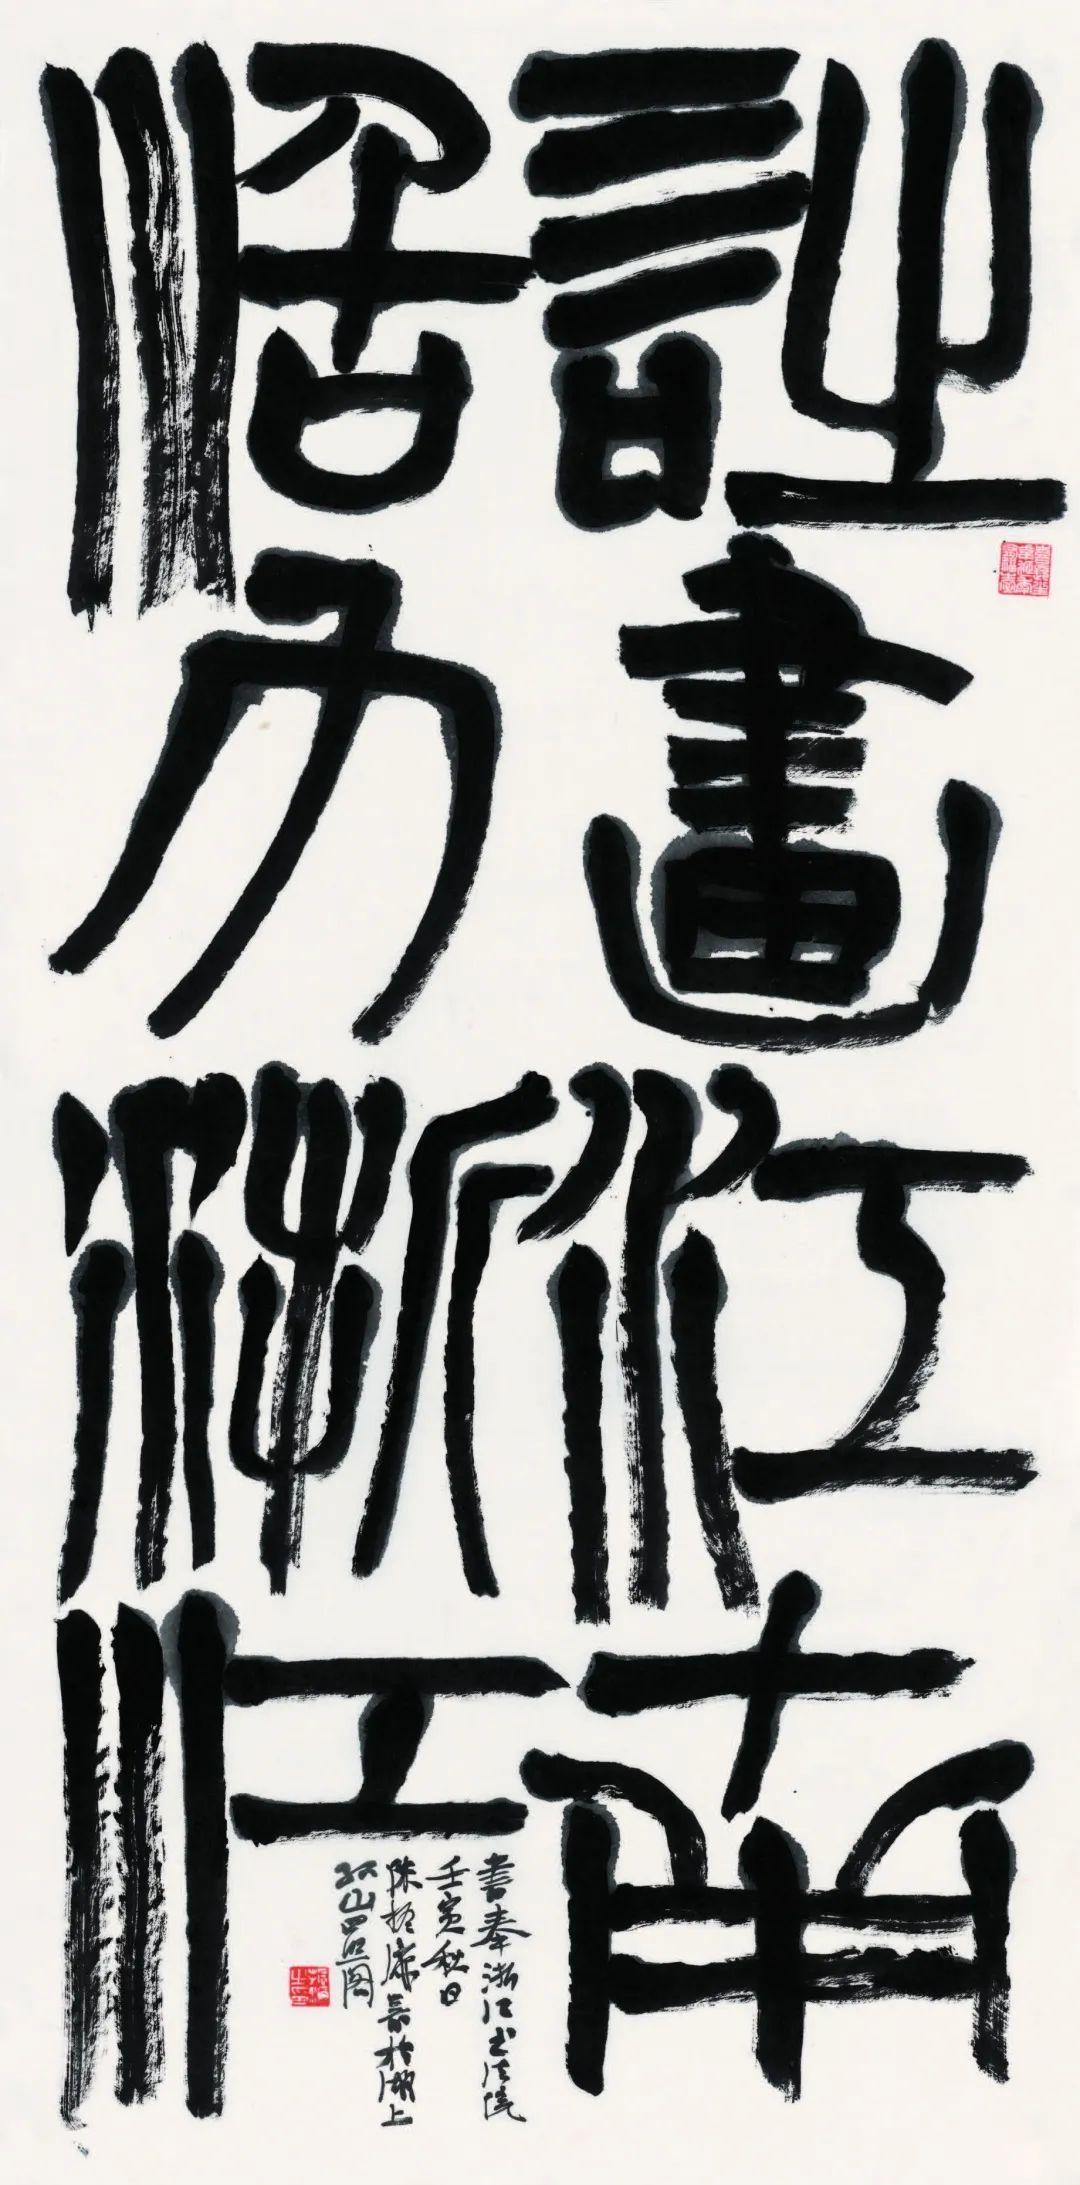 詩畫江南
活力浙江
書奉浙江书法院
壬寅秋日
陳振濂於湖上
孤山四照阁